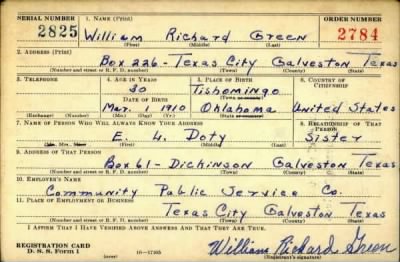 SERIAL NUMBER 1. NAME (Print) ORDER NUMBER
2825 William Richard Green 2784
(First) (Middle) (Last)
2. ADDRESS (Print)
Box 226 - Texas City Galveston Texas
(Number and street or R. F. D. number) (Town) (County) (State)
3. TELEPHONE 4. AGE IN YEARS 5. PLACE OF BIRTH 6. COUNTRY OF CITIZENSHIP
30 Tishomingo
DATE OF BIRTH (Town or county)
Mar. 1 1910 Oklahoma United States
(Exchange) (Number) (Mo.) (Day) (Yr.) (State or country)
7. NAME OF PERSON WHO WILL ALWAYS KNOW YOUR ADDRESS 8. RELATIONSHIP OF THAT PERSON
E. L. Doty Sister
(Mr., Mrs., Miss) (First) (Middle) (Last)
9. ADDRESS OF THAT PERSON
Box 61 - Dickinson Galveston Texas
(Number and street or R. F. D. number) (Town) (County) (State)
10. EMPLOYER'S NAME
Community Public Service Co.
11. PLACE OF EMPLOYMENT OR BUSINESS
Texas City Galveston Texas
(Number and street or R. F. D. number) (Town) (County) (State)
I AFFIRM THAT I HAVE VERIFIED ABOVE ANSWERS AND THAT THEY ARE TRUE.
REGISTRATION CARD
D. S. S. Form 1 (over) William Richard Green
(Registrant's signature)